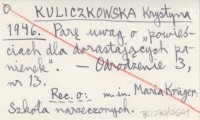 KULICZKOWSKA Krystyna
1946. Parę uwag o „powieś-
ciach dla dorastających pa-
nienek" — Odrodzenie 3,
nr 13.
Rec. o: m.in. Maria Krüger.
Szkoła narzeczonych.